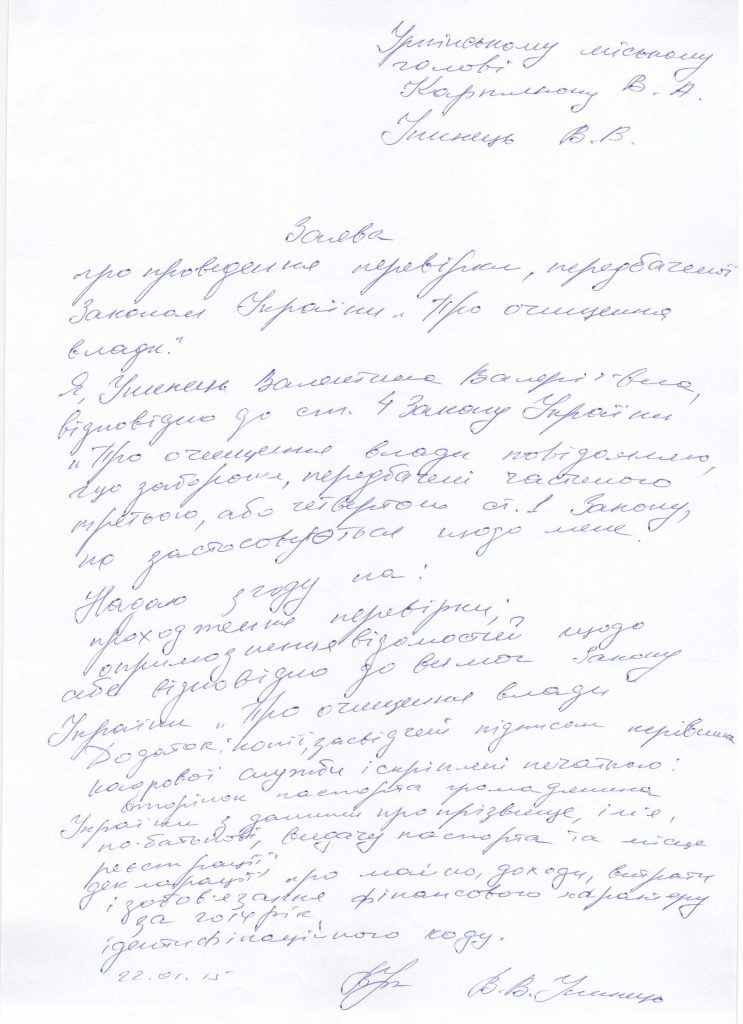 Ірпінському міському
голові
Карплюку В. А.
Ушинець В.В.
Заява
про проведення перевірки, передбаченої
Законом України „Про очищення
влади".
Я, Ушинець Валентина Валеріївна,
відповідно до ст. 4 Закону України
„Про очищення влади повідомляю,
що заборони, передбачені частиною
третьою, або четвертою ст. 1 Закону,
не застосовуються щодо мене.
Надаю згоду на:
проходження перевірки;
оприлюднення відомостей щодо
себе відповідно до вимог Закону
України „Про очищення влади
Додаток: копії, засвідчені підписом керівника
кадрової служби і скріплені печаткою:
сторінок паспорта громадянина
України з даними про прізвище, ім'я,
по-батькові, видачу паспорта та місце
реєстрації;
декларації про майно, доходи, витрати
і зобов'язання фінансового характеру
за 2014 рік,
ідентифікаційного коду.
22.01.15 В.В. Ушинець